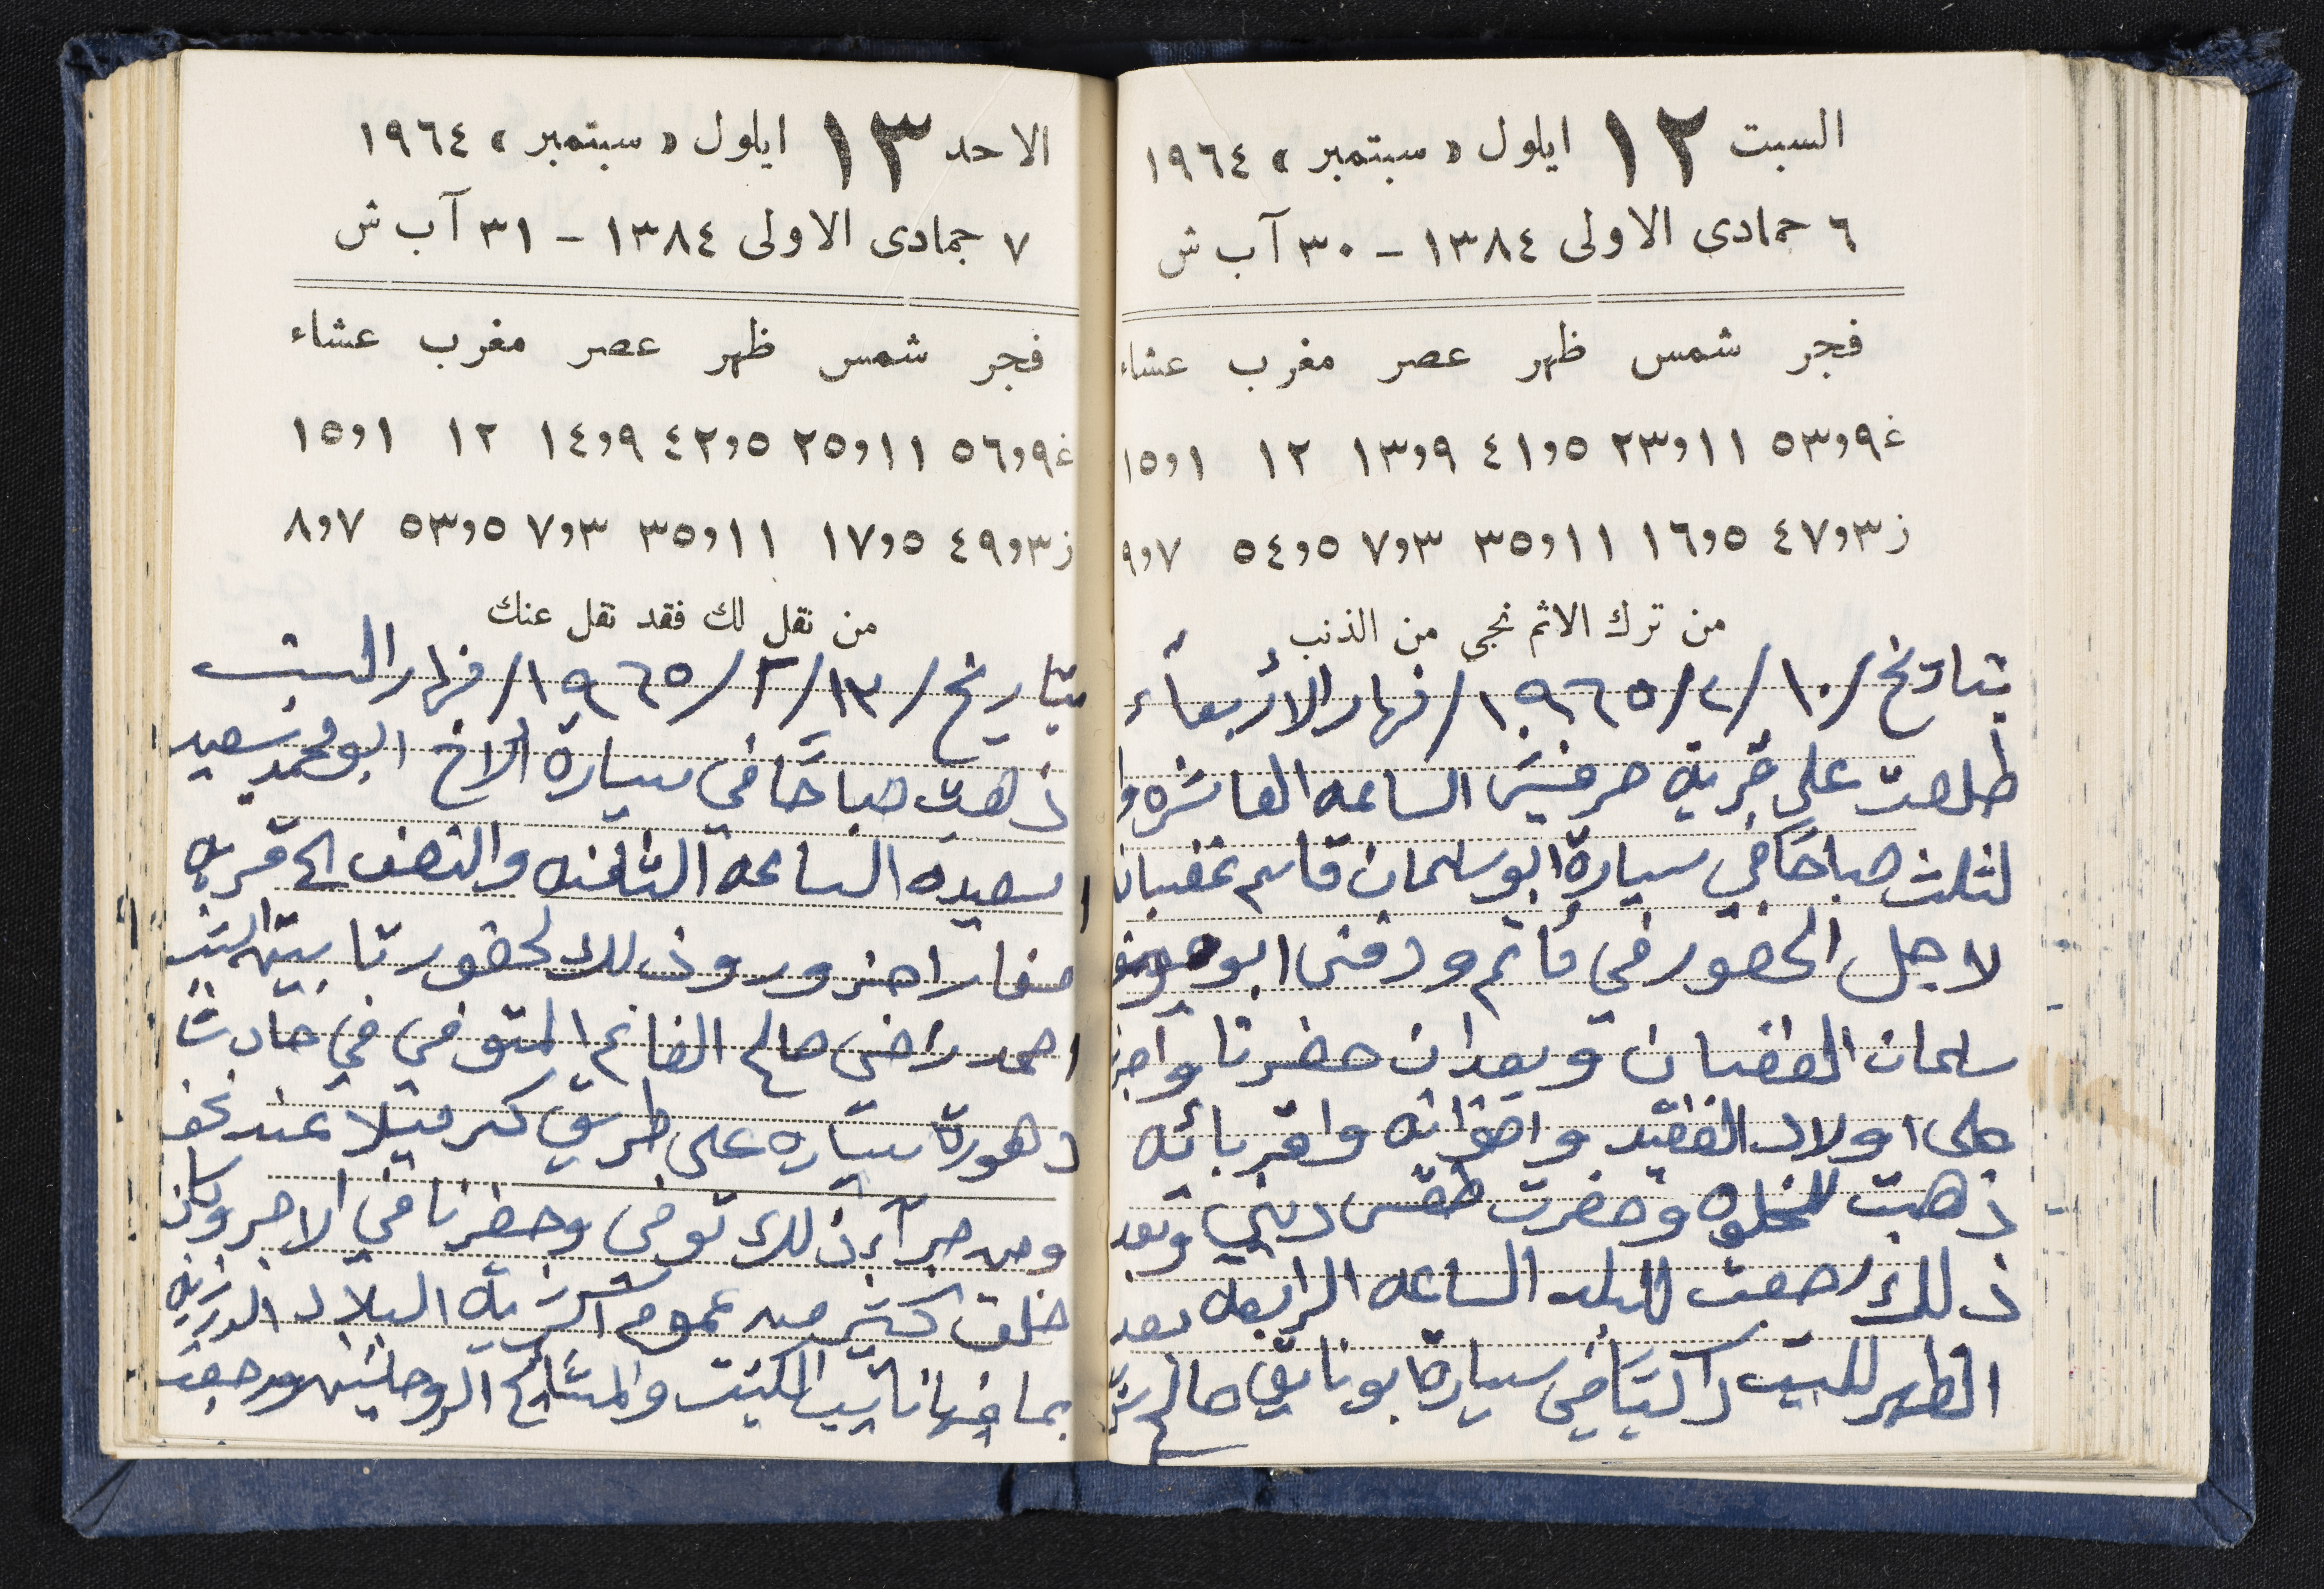 السبت ١٢ ايلول « سبتمبر » ١٩٦٤
٦ جمادى الاولى ١٣٨٤ - ٣٠ آب ش
فجر شمس ظهر عصر مغرب عشاء
غ ٩و٥٣ ١١و٢٣ ٥و٤١ ٩و١٣ ١٢ ١و١٥
ز ٣و٤٧ ٥و١٦ ١١و٣٥ ٣و٧ ٥و٥٤ ٧و٩
من ترك الاثم نجى من الذنب
بتاريخ /١٠/٢/١٩٦٥/ نهار الأربعاء
طلعت على قرية حرفيش الساعه العاشره وا
لثلث صباحًا في سيارة ابو سلمان قاسم غضبان
لاجل الحضور في مأتم ودفنى ابو
سلمان الغضبان وبعد ان حضرنا واجبـ
على اولاد الفقيد واخوانه واقربائه
ذهبت للخلوه وحضرت طقس ديني وبعد
ذلك رجعت للبلد الساعه الرابعة بعد
الظهر للبيت راكبًا في سيارة ابو نايف صالح
الاحد ١٣ ايلول « سبتمبر » ١٩٦٤
٧ جمادى الاولى ١٣٨٤ - ٣١ آب ش
فجر شمس ظهر عصر مغرب عشاء
غ ٩و٥٦ ١١و٢٥ ٥و٤٢ ٩و١٤ ١٢ ١و١٥
ز ٣و٤٩ ٥و١٧ ١١و٣٥ ٣و٧ ٥و٥٣ ٧و٨
من نقل لك فقد نقل عنك
بتاريخ /١٣/٢/١٩٦٥/ نهار السبت
ذهبت صباحًا في سيارة الاخ ابو محمد سعيد
اسعيده الساعة الثامنه والنصف الى قرية
مغار احزور وذلك لحضور تابين
احمد راضى صالح الغانم المتوفى في حادث
دهورة سياره على طريق كرميئلا عند نحف
ومن جرآء ذلك توفى وحضرنا في الاجر وكان
خلق كثير من عموم اكثرية البلاد الدرزية
بما فيها نائب الكنيست والمشايخ الروحانيين ورجعت